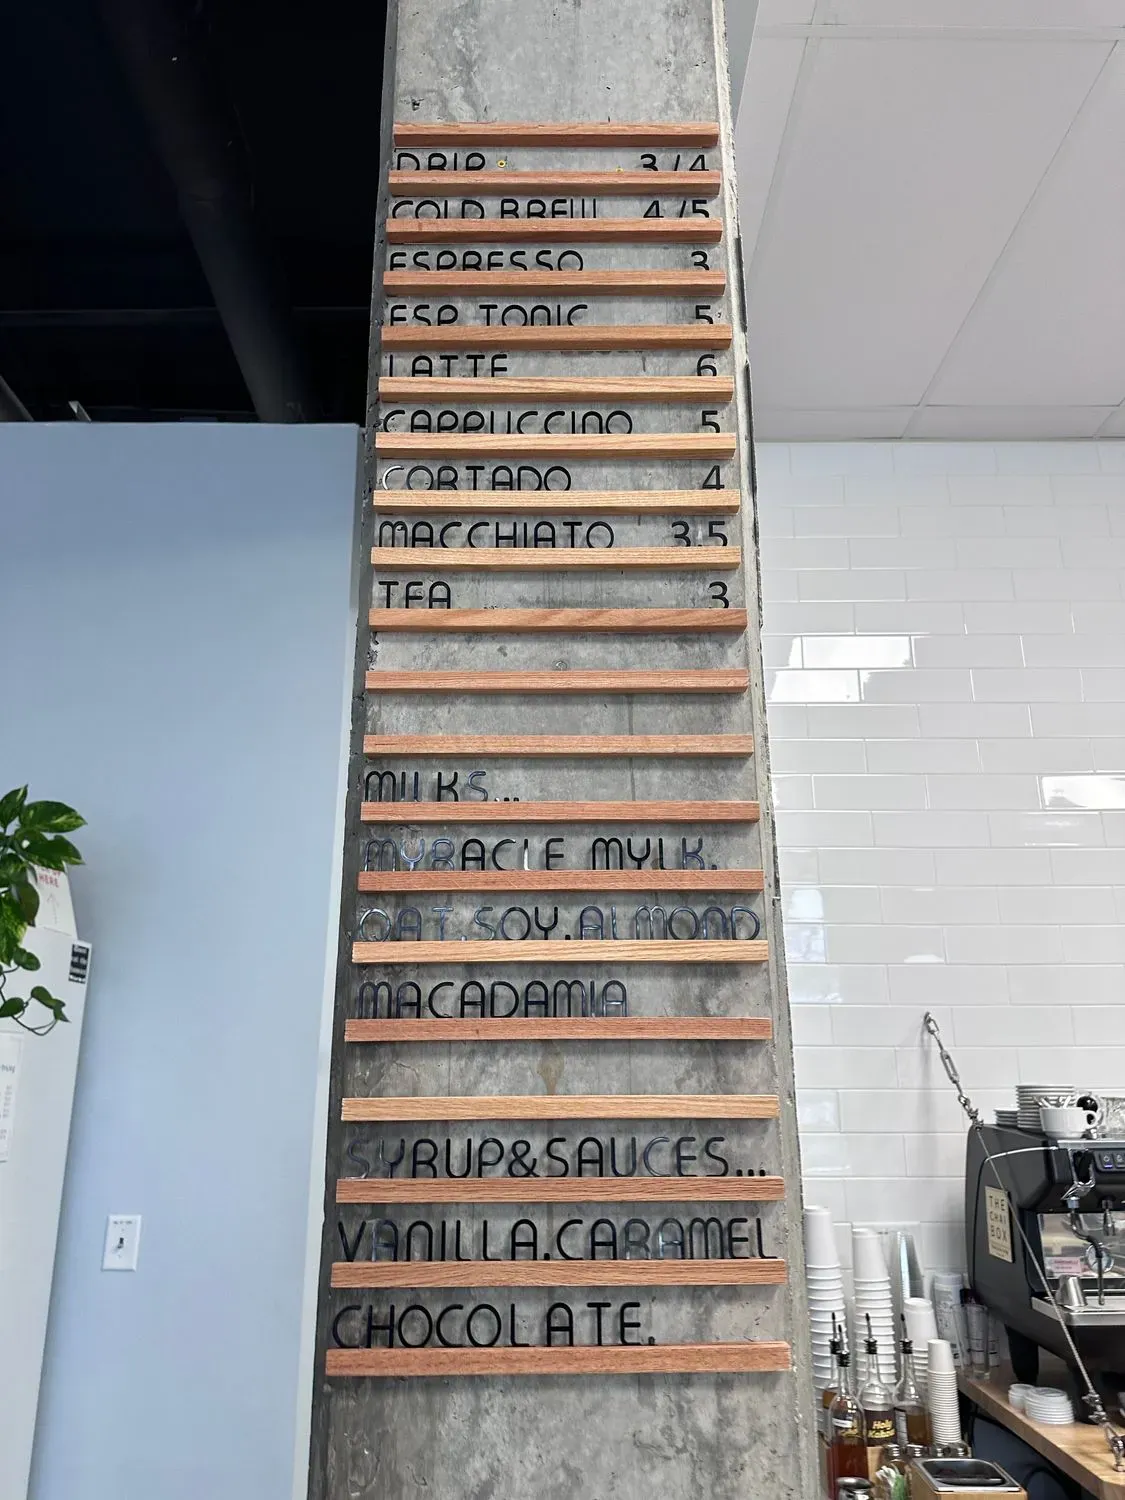 DRIP 3/4
COLD BREW 4/5
ESPRESSO 3
ESP TONIC 5
LATTE 6
CAPPUCCINO 5
CORTADO 4
MACCHIATO 3.5
TEA 3
MILKS...
MYRACLE MYLK.
OAT.SOY.ALMOND
MACADAMIA
SYRUP&SAUCES...
VANILLA.CARAMEL
CHOCOLATE.
THE
CHAI
BOX
Holy
HERE